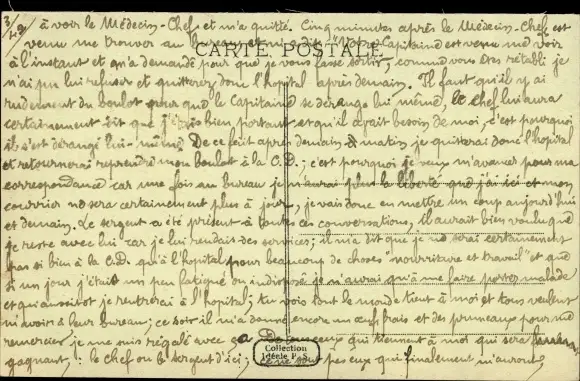 3/42
à voir le Médecin-Chef et m'a quitté. Cinq minutes après le Médecin-Chef est
venu me trouver au et m'a dit "Votre Capitaine est venu me voir
CARTE POSTALE
à l'instant et m'a demandé pour que je vous fasse sortir, comme vous êtes rétabli je
n'ai pu lui refuser et quitterez donc l'hôpital après demain. Il faut qu'il y ai
rudement du boulot pour que le Capitaine se dérange lui même, le chef lui aura
certainement dit que j'étais bien portant et qu'il avait besoin de moi, c'est pourquoi
il s'est dérangé lui-même. De ce fait après demain matin je quitterai donc l'hôpital
et retournerai reprendre mon boulot à la C.D.; c'est pourquoi je veux m'avancer pour ma
correspondance car une fois au bureau je n'aurai plus la liberté que j'ai ici et mon
courrier ne sera certainement plus à jour, je vais donc en mettre un coup aujourd'hui
et demain. Le sergent a été présent à toutes ces conversations, il aurait bien voulu que
je reste avec lui car je lui rendais des services; il m'a dit que je ne serai certainement
pas si bien à la C.D. qu'à l'hôpital pour beaucoup de choses "nourriture et travail" et que
si un jour j'étais un peu fatigué ou indisposé je n'aurai qu'à me faire porter malade
et qu'aussitôt je rentrerai à l'hôpital; tu vois tout le monde tient à moi et tous veulent
m'avoir à leur bureau; ce soir il m'a donné encore un œuf frais et des pruneaux pour me
remercier je me suis régalé avec ça. De tous ceux qui tiennent à moi qui sera
gagnant, : le chef ou le sergent d'ici; ce ne sont pas eux qui finalement m'auront,
Collection
Idéale P.S.